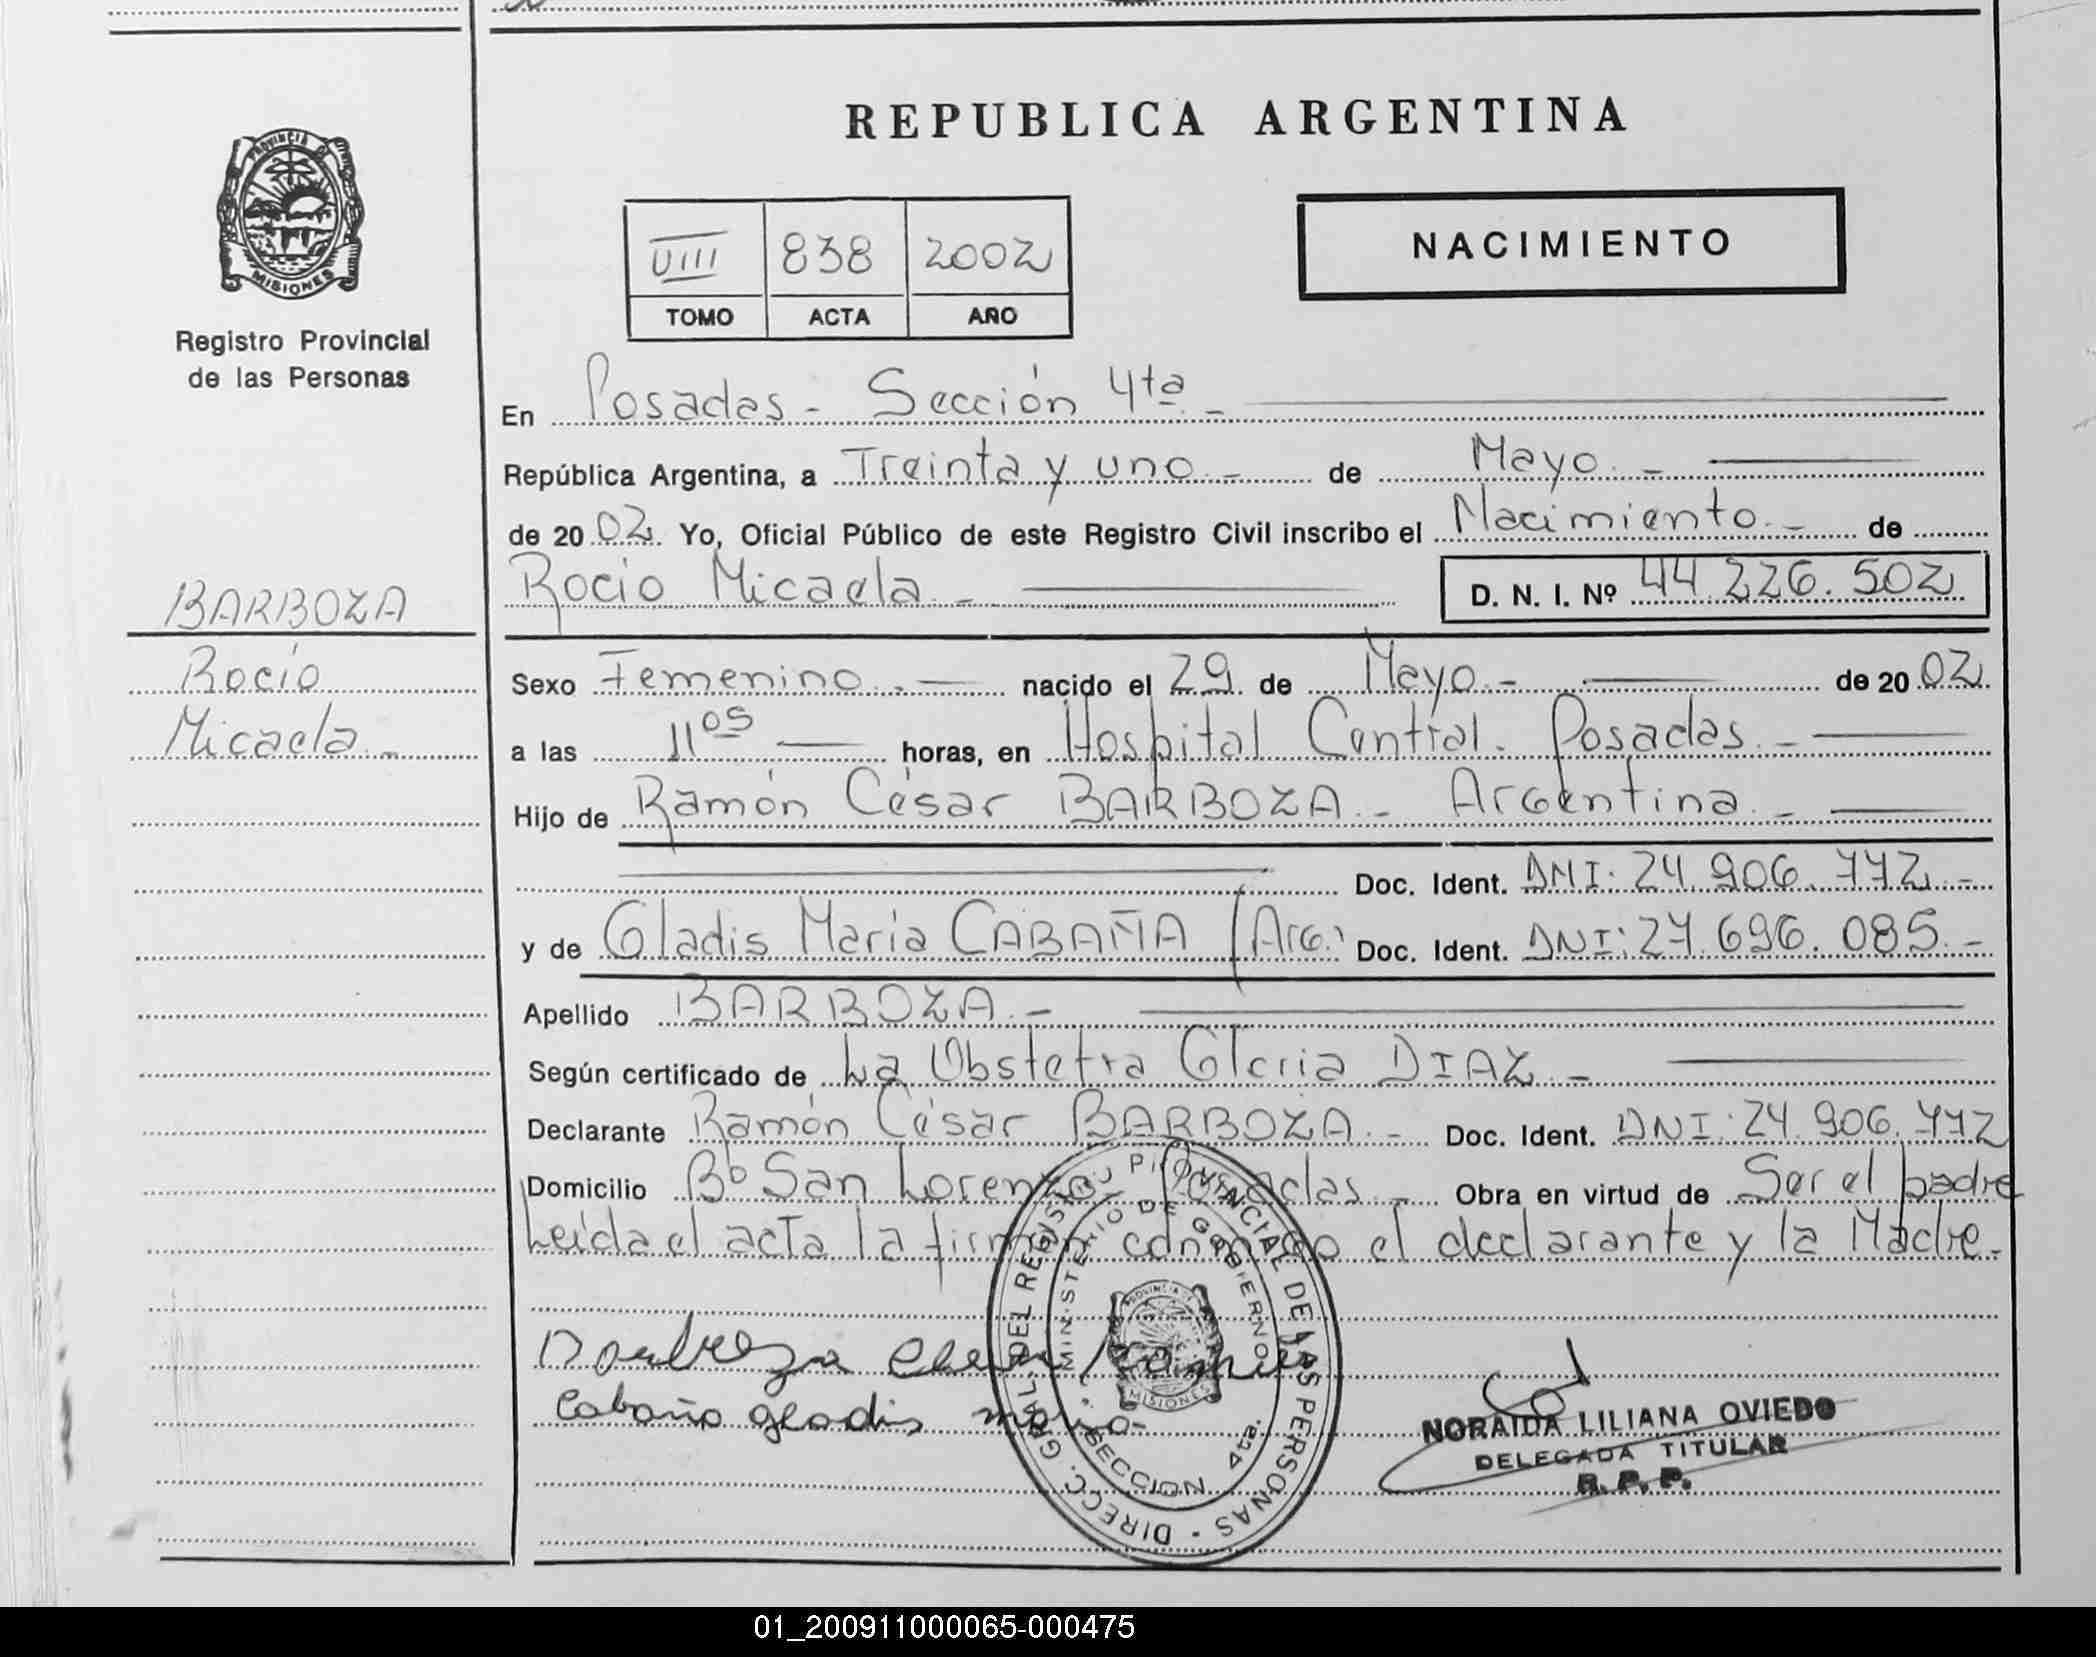 REPUBLICA ARGENTINA
PROVINCIA DE
MISIONES
Registro Provincial
de las Personas
VIII 838 2002
TOMO ACTA AÑO
NACIMIENTO
En Posadas - Sección 4ta -
República Argentina, a Treinta y uno - de Mayo. -
de 2002. Yo, Oficial Público de este Registro Civil inscribo el Nacimiento. - de
Rocio Micaela - D. N. I. Nº 44.226.502
BARBOZA
Rocío
Micaela. -
Sexo Femenino. - nacido el 29 de Mayo - de 2002.
a las 11 05 horas, en Hospital Central. Posadas. -
Hijo de Ramón César BARBOZA. - Argentina. -
Doc. Ident. DNI: 24.906.772. -
y de Gladis María CABAÑA (Arg.) Doc. Ident. DNI: 27.696.085. -
Apellido BARBOZA. -
Según certificado de La Obstetra Gloria DIAZ. -
Declarante Ramón César BARBOZA. - Doc. Ident. DNI: 24.906.772
Domicilio Bº San Lorenzo - Posadas. - Obra en virtud de Ser el padre
Leída el acta la firman conmigo el declarante y la Madre.
Cabaña gladis maria-
DIRECC. GRAL. DEL REGISTRO PROVINCIAL DE LAS PERSONAS -
MINISTERIO DE GOBIERNO
PROVINCIA DE
MISIONES
SECCION 4ta.
NORAIDA LILIANA OVIEDO
DELEGADA TITULAR
R. P. P.
01_200911000065-000475